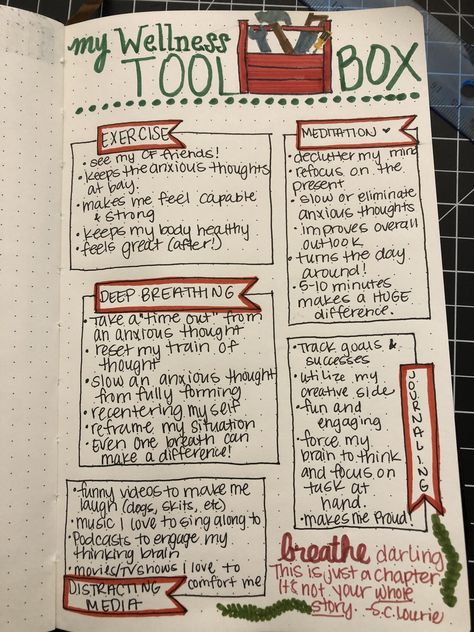 my Wellness
TOOL BOX
EXERCISE
• see my CF friends!
• keeps the anxious thoughts
at bay.
• makes me feel capable
& strong
• keeps my body healthy
• feels great (after!)
MEDITATION ♥
• declutter my mind
• refocus on the
present
• slow or eliminate
anxious thoughts
• improves overall
outlook
• turns the day
around!
• 5-10 minutes
makes a HUGE
difference.
DEEP BREATHING
• take a "time out" from
an anxious thought
• reset my train of
thought
• slow an anxious thought
from fully forming
• recentering myself
• reframe my situation
• Even one breath can
make a difference!
JOURNALING
• track goals &
successes
• utilize my
creative side
• fun and
engaging
• force my
brain to think
and focus on
task at
hand.
• makes me Proud!
• funny videos to make me
laugh (dogs, skits, etc)
• music I love to sing along to
• Podcasts to engage my
thinking brain
• movies/TV shows I love to
comfort me
DISTRACTING
MEDIA
breathe darling
This is just a chapter.
It's not your whole
story. -S.C. Lourie